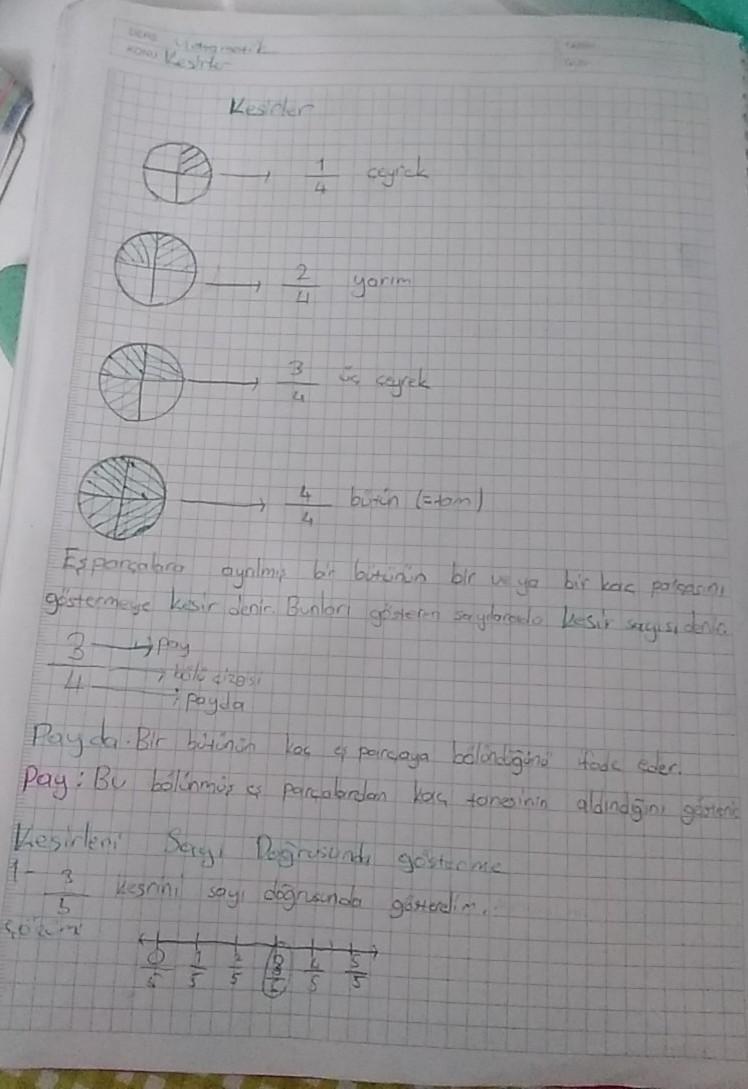 DERS Matematik
KONU Kesirler
Kesirler
1/4 çeyrek
2/4 yarım
3/4 üç çeyrek
4/4 bütün (=tam)
Eş parçalara ayrılmış bir bütünün bir veya bir kaç parçasını
göstermeye kesir denir. Bunları gösteren sayılarada kesir sayısı denir.
3 → pay
→ bölü çizgisi
4 → payda
Payda: Bir bütünün kaç eş parçaya bölündüğünü ifade eder.
Pay: Bu bölünmüş eş parçalardan kaç tanesinin alındığını gösterir
Kesirleri Sayı Doğrusunda gösterme
1- 3/5 kesrini sayı doğrusunda gösterelim.
çözüm
0/5 1/5 2/5 3/5 4/5 5/5